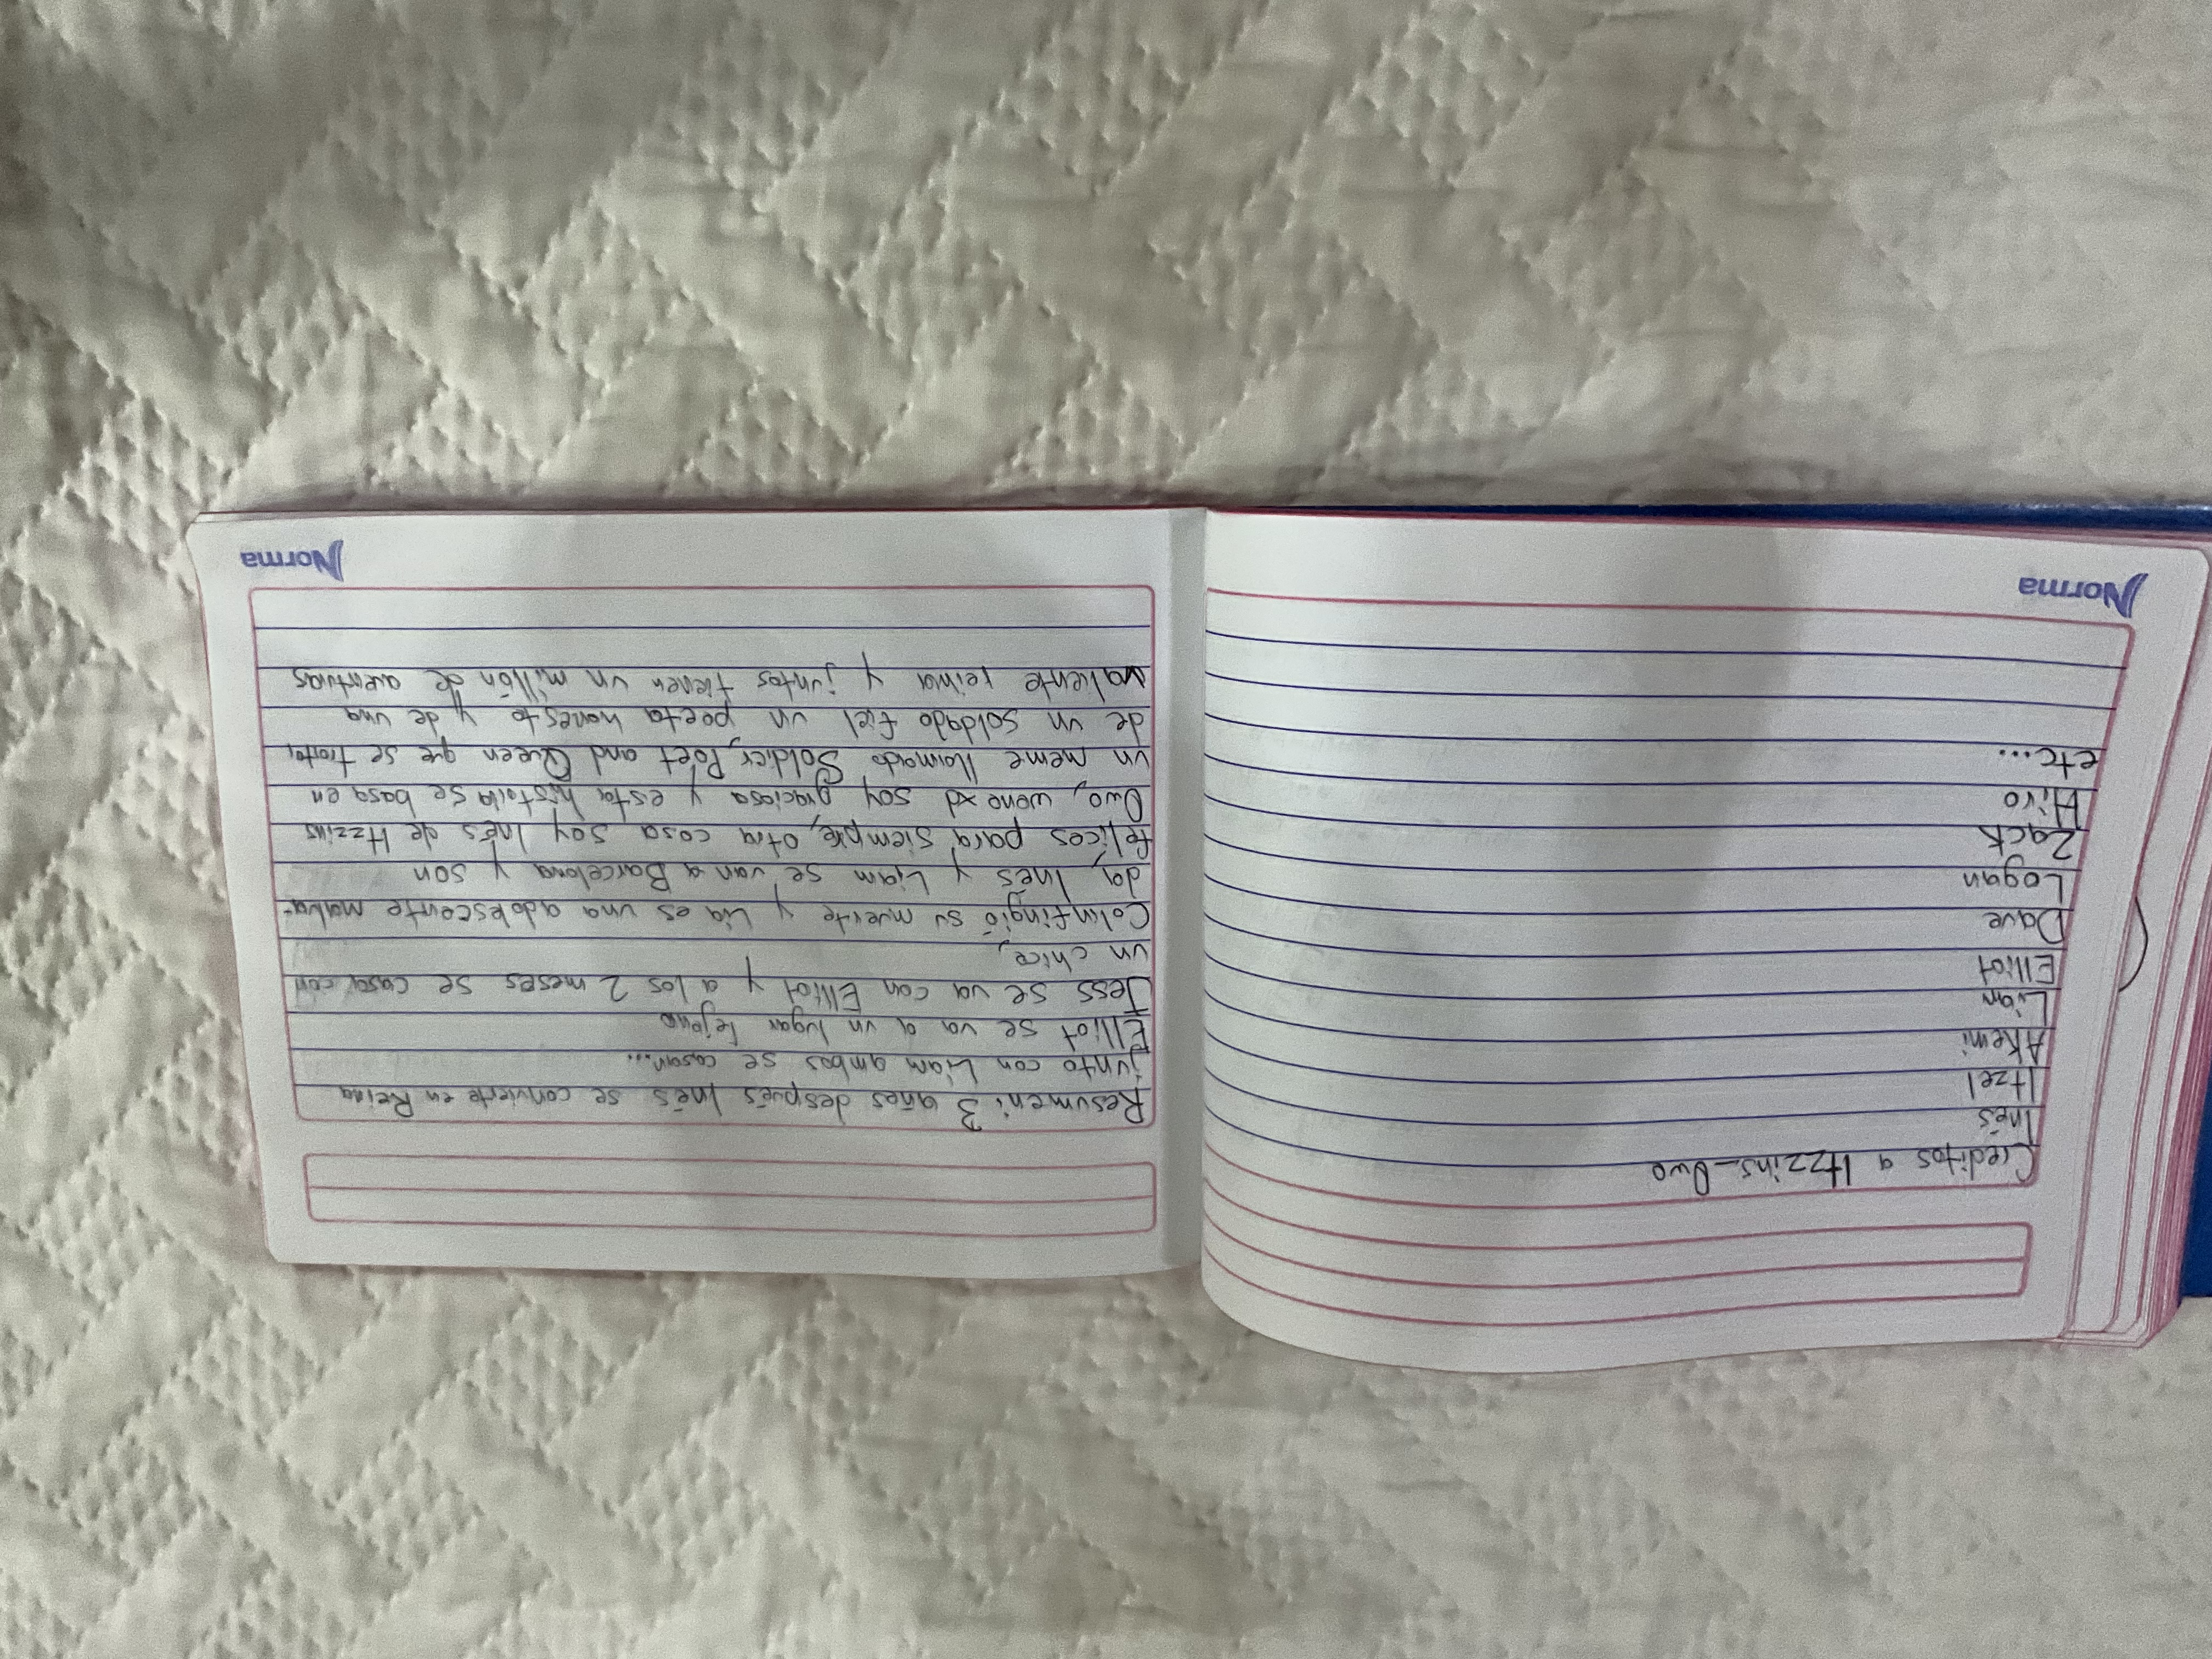 Creditos a Itzzins_Owo
Inés
Itzel
Akemi
Liam
Elliot
Dave
Logan
Zack
Hiro
etc...
Norma
Resumen: 3 años después Inés se convierte en Reina
junto con Liam ambos se casan...
Elliot se va a un lugar lejano
Jess se va con Elliot y a los 2 meses se casa con
un chico,
Colin fingió su muerte y Lia es una adolescente malva-
da, Inés y Liam se van a Barcelona y son
felices para siempre, otra cosa soy Inés de Itzzins
Owo, weno xd soy graciosa y esta historia se basa en
un meme llamado Soldier, Poet and Queen que se trata,
de un soldado fiel un poeta honesto y de una
valiente reina y juntos tienen un millón de aventuras
Norma